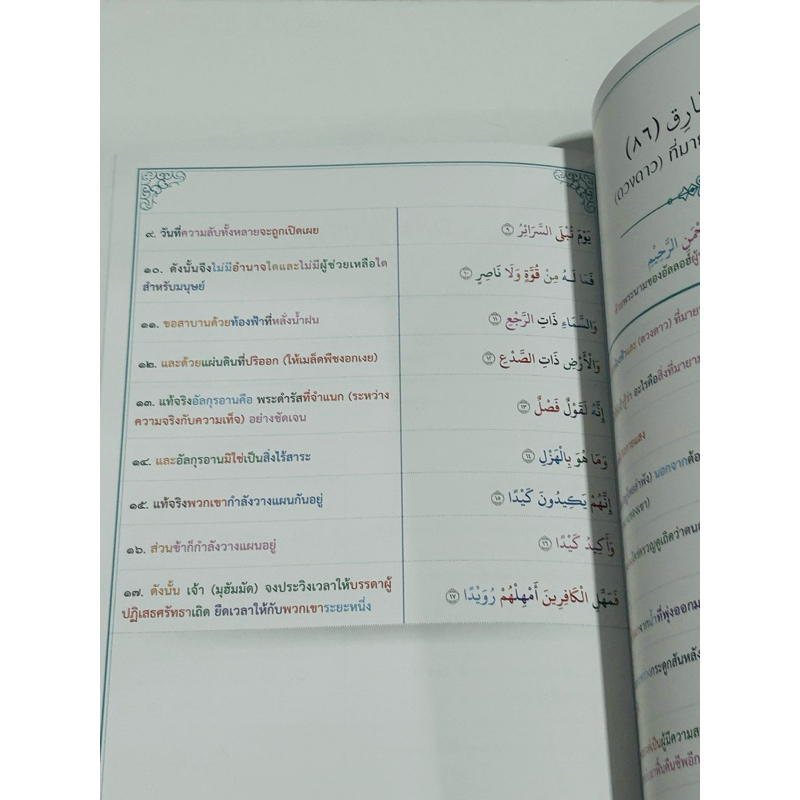 ๙. วันที่ความลับทั้งหลายจะถูกเปิดเผย
يَوْمَ تُبْلَى السَّرَائِرُ ٩
๑๐. ดังนั้นจึงไม่มีอำนาจใดและไม่มีผู้ช่วยเหลือใด
สำหรับมนุษย์
فَمَا لَهُ مِنْ قُوَّةٍ وَلَا نَاصِرٍ ١٠
๑๑. ขอสาบานด้วยท้องฟ้าที่หลั่งน้ำฝน
وَالسَّمَاءِ ذَاتِ الرَّجْعِ ١١
๑๒. และด้วยแผ่นดินที่ปริออก (ให้เมล็ดพืชงอกเงย)
وَالْأَرْضِ ذَاتِ الصَّدْعِ ١٢
๑๓. แท้จริงอัลกุรอานคือ พระดำรัสที่จำแนก (ระหว่าง
ความจริงกับความเท็จ) อย่างชัดเจน
إِنَّهُ لَقَوْلٌ فَصْلٌ ١٣
๑๔. และอัลกุรอานมิใช่เป็นสิ่งไร้สาระ
وَمَا هُوَ بِالْهَزْلِ ١٤
๑๕. แท้จริงพวกเขากำลังวางแผนกันอยู่
إِنَّهُمْ يَكِيدُونَ كَيْدًا ١٥
๑๖. ส่วนข้าก็กำลังวางแผนอยู่
وَأَكِيدُ كَيْدًا ١٦
๑๗. ดังนั้น เจ้า (มุฮัมมัด) จงประวิงเวลาให้บรรดาผู้
ปฏิเสธศรัทธาเถิด ยืดเวลาให้กับพวกเขาระยะหนึ่ง
فَمَهِّلِ الْكَافِرِينَ أَمْهِلْهُمْ رُوَيْدًا ١٧
(٨٦)
(ดวงดาว) ที่มา
الرَّحِيْمِ
พระนามของอัลลอฮ์ผู้
(ดวงดาว) ที่มายา
อะไรคือสิ่งที่มายาม
นอกจากต้อง
น้ำที่พุ่งออกม
กระดูกสันหลัง
เป็นผู้มีความส